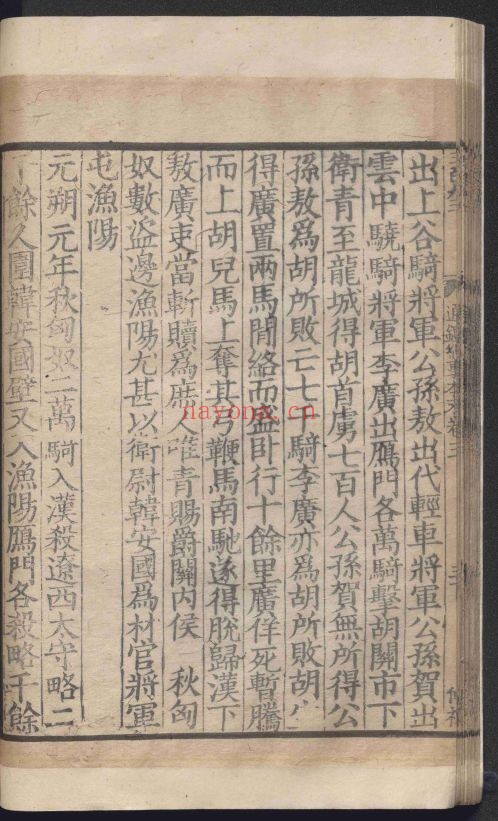 通鑑紀事本末卷三
出上谷騎將軍公孫敖出代輕車將軍公孫賀出
雲中驍騎將軍李廣出鴈門各萬騎擊胡關市下
衛青至龍城得胡首虜七百人公孫賀無所得公
孫敖爲胡所敗亡七千騎李廣亦爲胡所敗胡
得廣置兩馬閒絡而盛卧行十餘里廣佯死暫騰
而上胡兒馬上奪其弓鞭馬南馳遂得脫歸漢下
敖廣吏當斬贖爲庶人唯青賜爵關内侯 秋匈
奴數盜邊漁陽尤甚以衛尉韓安國爲材官將軍
屯漁陽
元朔元年秋匈奴二萬騎入漢殺遼西太守略二
千餘人圍韓安國壁又入漁陽鴈門各殺略千餘
nayona.cn